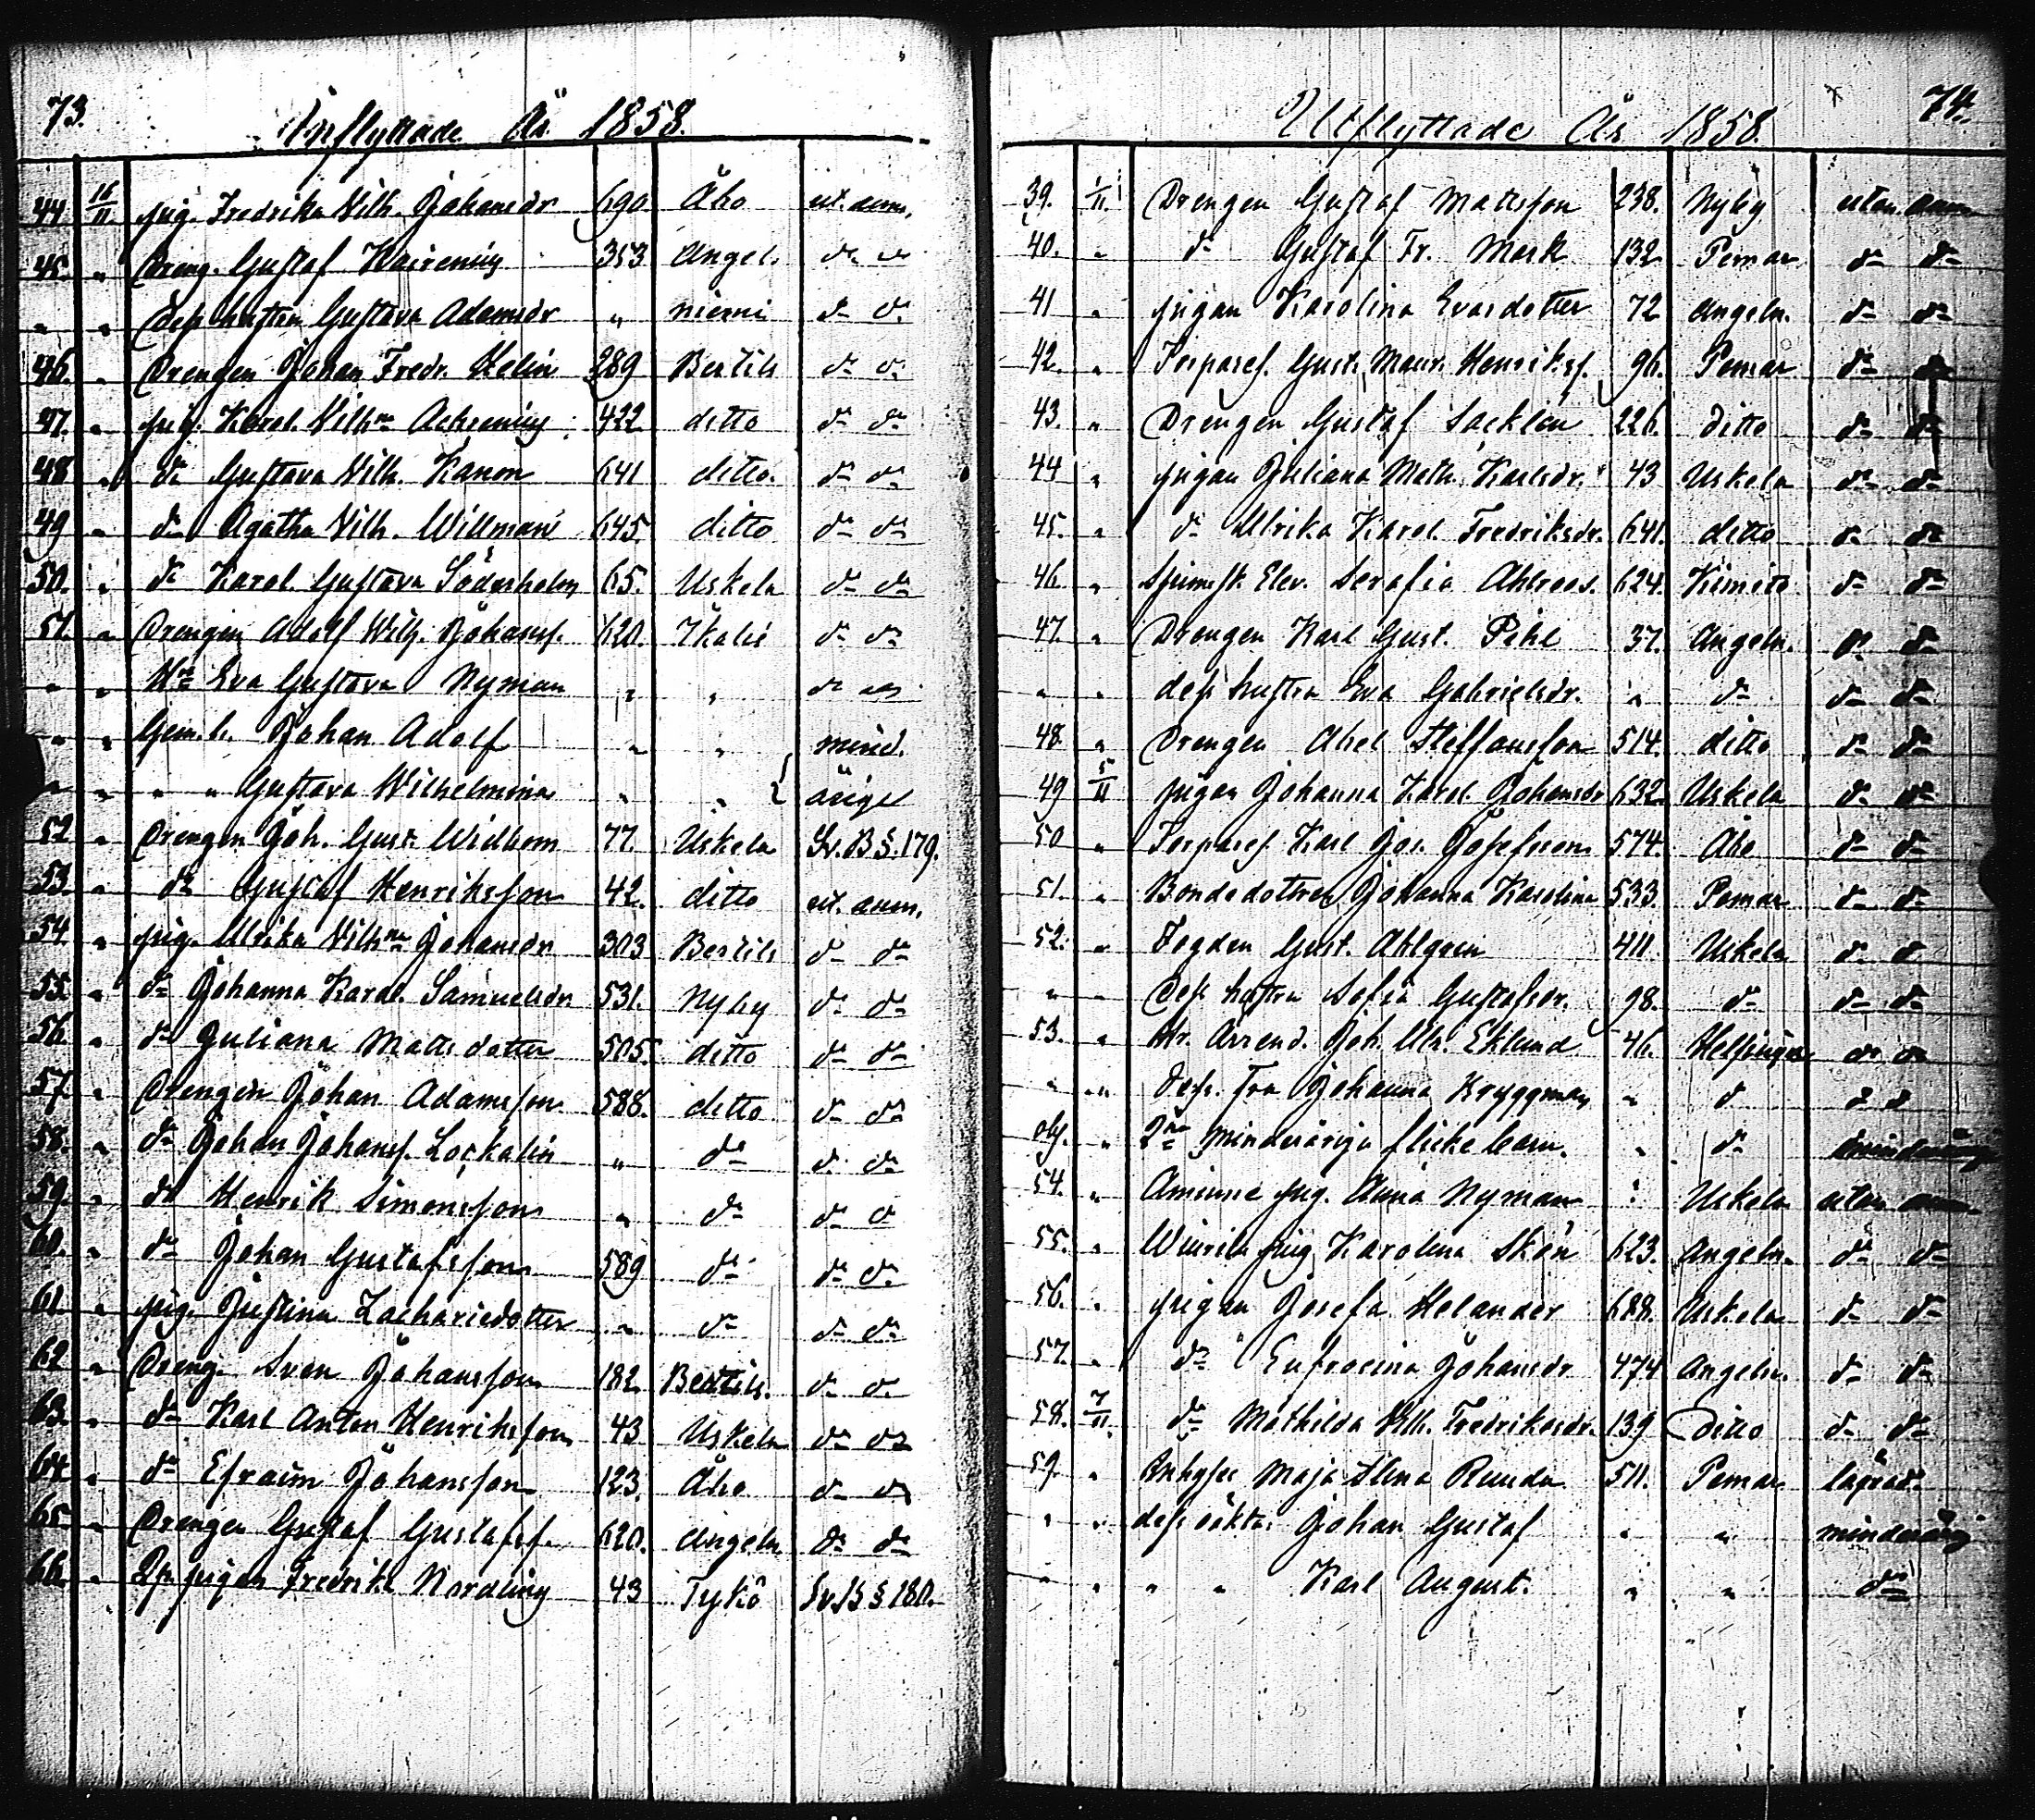 73.
Inflyttade År 1858.
44 16/11. pig. Fredrika Vilh. Johansdr 690. Åbo ut. anm.
45. " Dreng. Gustaf 353 Angel- dn dn
" " Dess hustru Gustava Adamsdr " niemi dn dn
46. " Drengen Johan Fredr. Helin 289 Bertils dn dn
47. " pig. Karol. Vilhna 422 ditto dn dn
48 " dn Gustava Vilh. Kanon 641 ditto. dn dn
49 " dn Agatha Vilh. Willman 645. ditto dn dn
50. " dn Karol. Gustava Söderholm 65. Uskela dn dn
51. " Drengen Adolf Wilh. Johanss. 620. Ikalis dn dn
" " Eva Gustava Nyman " " dn
" " Gem. b. Johan Adolf " " mind.
" " " " Gustava Wilhelmina " " årige
52 " Drengen Joh. Gust. Widbom 77. Uskela Sv. B §. 179.
53. " dn Gustaf Henriksson 42. ditto ut. anm.
54 " pig. Ulrika Vilhna Johansdr 303 Bertils dn dn
55. " dn Johanna Karol. Samuelsdr 531. Nyby dn dn
56. " dn Juliana Mattsdotter 505. ditto dn dn
57. " Drengen Johan Adamsson 588. ditto dn dn
58. " dn Johan Johanss. " dn dn dn
59. " dn Henrik Simonsson " dn dn dn
60. " dn Johan Gustafsson 589 dn dn dn
61. " pig. Justina Zachariedotter " dn dn dn
62 " Dreng. Sven Johansson 182. Bertils. dn dn
63. " dn Karl Anton Henriksson 43 Uskela dn dn
64. " dn Efraim Johansson 123. Åbo dn dn
65. " Drengen Gustaf Gustafss. 620. Angeln. dn dn
66. " pigan Fredrika Nordling 43 Tykö Sv. B § 180.
74.
Utflyttade År 1858.
39. 1/11. Drengen Gustaf Mattsson 238. Nyby utan anm
40. " dn Gustaf Fr. Mark 132 Pemar dn dn
41 " pigan Karolina Evasdotter 72 Angeln. dn dn
42. " Torpares. Gust. Maur. Henrikss. 96. Pemar dn dn
43. " Drengen Gustaf Sacklén 226. ditto dn dn
44 " pigan Juliana Math. Karlsdr. 43 Uskela dn dn
45. " dn Ulrika Karol. Fredriksdr. 641. ditto dn dn
46. " Elev. Serafia Ahlroos. 624. Kimito dn dn
47 " Drengen Karl Gust. Pihl 37. Angeln. dn dn
" " dess hustru Eva Gabrielsdr. " dn dn dn
48. " Drengen Abel Steffansson 514. ditto dn dn
49 5/11 pigan Johanna Karol. Johansdr 632. Uskela dn dn
50 " Torpares. Karl Jos. Josefsson 574. Åbo dn dn
51. " Bondedottren Johanna Karolina 533. Pemar dn dn
52. " Fogden Gust. Ahlgren 411. Uskela dn dn
" " Dess hustru Sofia Gustafsdr. 98. dn dn dn
53. " Hr. Arrend. Joh. Ulr. Eklund 46. Helsinge dn dn
" " Dess Fru Johanna Bryggman " dn dn dn
" minderåriga flickebarn. " dn minderåriga
54. " pig. Anna Nyman ? Uskela utan anm
55. " pig. Karolina Skön 623. Angeln. dn dn
56. " pigan Josefa Helander 628. Uskela dn dn
57. " dn Eufrosina Johansdr 474 Angeln. dn dn
58. 7/11. dn Mathilda Vilh. Fredriksdr. 139 Ditto dn dn
59. " Inhyses Maja Stina Runda 511. Pemar lagvad.
" " dess oäkta: Johan Gustaf " " minderårig
" " " " Karl August. " " dn